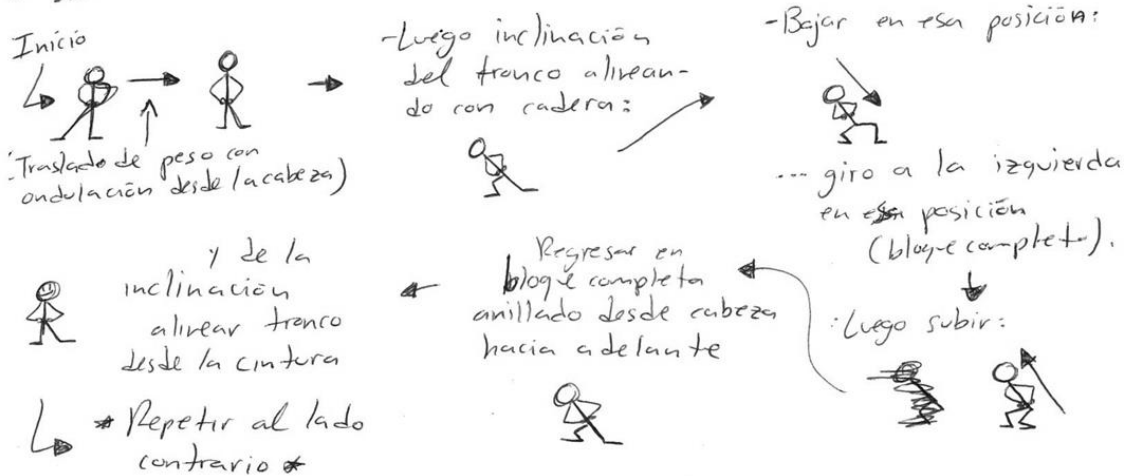 Inicio
(Traslado de peso con
ondulación desde la cabeza)
-Luego inclinación
del tronco alinean-
do con cadera:
-Bajar en esa posición:
... giro a la izquierda
en esa posición
(bloque completo).
:Luego subir:
Regresar en
bloque completo
anillado desde cabeza
hacia adelante
y de la
inclinación
alinear tronco
desde la cintura
* Repetir al lado
contrario *